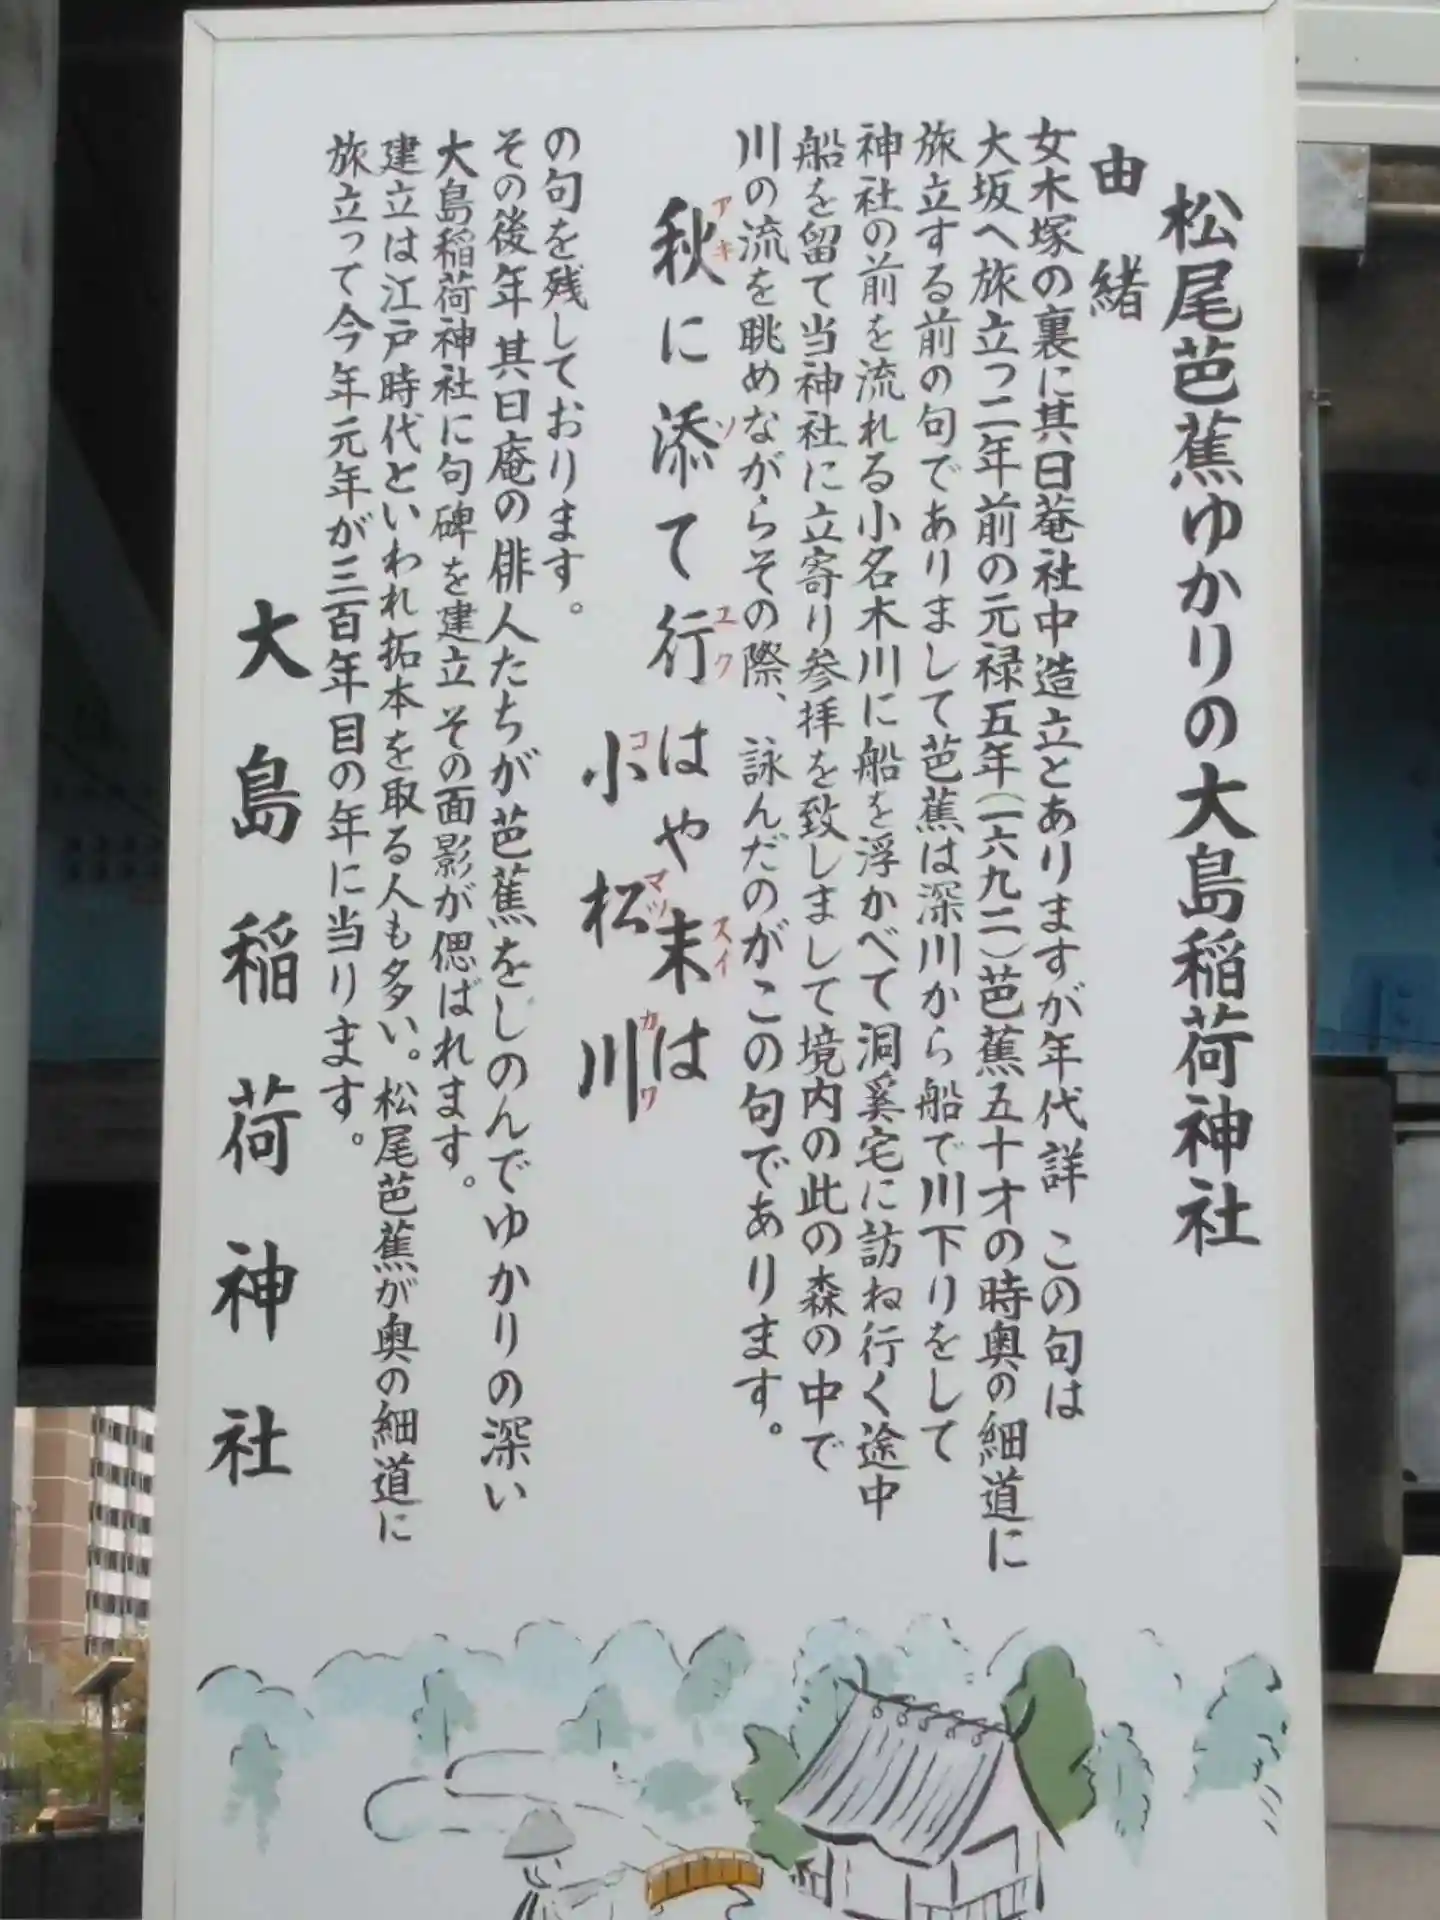 松尾芭蕉ゆかりの大島稲荷神社
由緒
女木塚の裏に其日菴社中造立とありますが年代詳 この句は
大坂へ旅立つ二年前の元禄五年(一六九二)芭蕉五十才の時奥の細道に
旅立する前の句でありまして芭蕉は深川から船で川下りをして
神社の前を流れる小名木川に船を浮かべて洞奚宅に訪ね行く途中
船を留て当神社に立寄り参拝を致しまして境内の此の森の中で
川の流を眺めながらその際、詠んだのがこの句であります。
秋に添て行はや末は
アキ ソ ユク スイ
小松川
コ マツ カワ
の句を残しております。
その後年 其日庵の俳人たちが芭蕉をしのんでゆかりの深い
大島稲荷神社に句碑を建立 その面影が偲ばれます。
建立は江戸時代といわれ拓本を取る人も多い。松尾芭蕉が奥の細道に
旅立って今年元年が三百年目の年に当ります。
大島稲荷神社